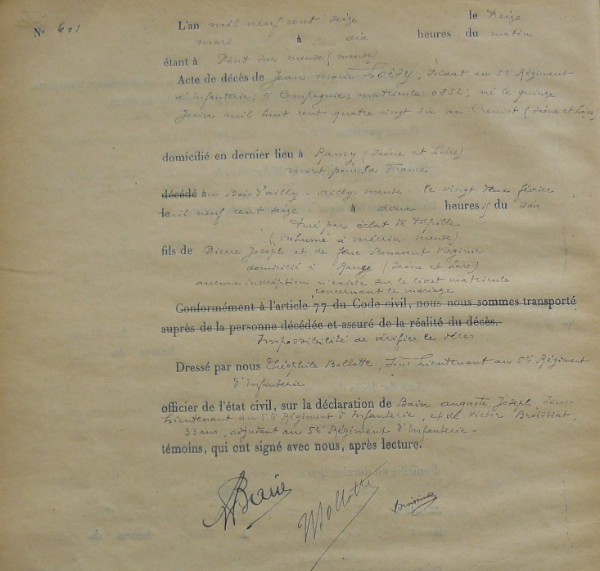 L'an mil neuf cent seize le Seize
mars à dix heures du matin
étant à Pont sur meuse (meuse)
Acte de décès de Jean Marie soldat au 56 Régiment
d'Infanterie, Compagnie; matricule 0852, né le quinze
mil huit cent quatre vingt dix au Creusot (Saône et Loire)
domicilié en dernier lieu à (Saône et Loire)
mort pour la France
décédé au Bois d'ailly - meuse le vingt deux février
mil neuf cent seize à douze heures du soir
Tué par éclat de torpille
(inhumé à mécrin meuse)
fils de Pierre Joseph et de Bonamont
domicilié à (Saône et Loire)
aucune inscription n'existe sur le livret matricule
concernant le mariage
Conformément à l'article 77 du Code civil, nous nous sommes transporté
auprès de la personne décédée et assuré de la réalité du décès.
Impossibilité de vérifier le décès
Dressé par nous Théophile Sous Lieutenant au 56 Régiment
d'Infanterie
officier de l'état civil, sur la déclaration de auguste Joseph, Sous
Lieutenant au 56 Régiment d'Infanterie, et de Victor
33 ans, adjudant au 56 Régiment d'Infanterie.
témoins, qui ont signé avec nous, après lecture.